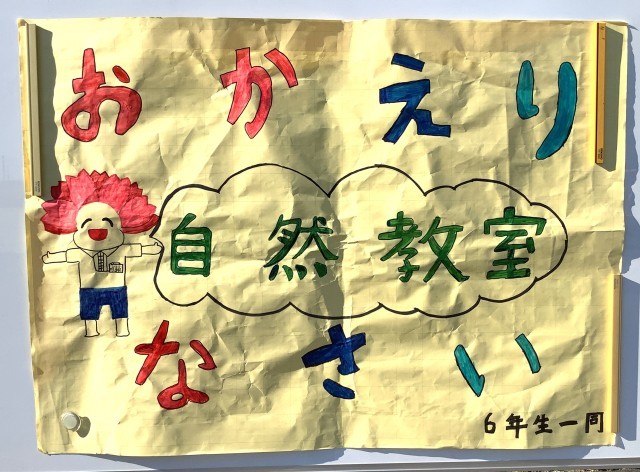 おかえり
自然教室
なさい
6年生一同